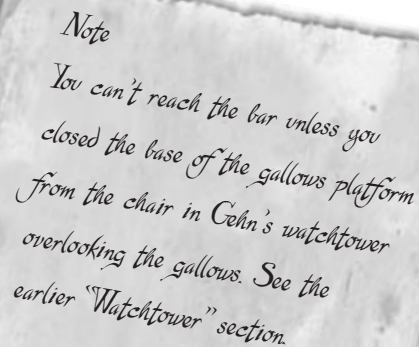 Note
You can't reach the bar unless you
closed the base of the gallows platform
from the chair in Gehn's watchtower
overlooking the gallows. See the
earlier "Watchtower" section.